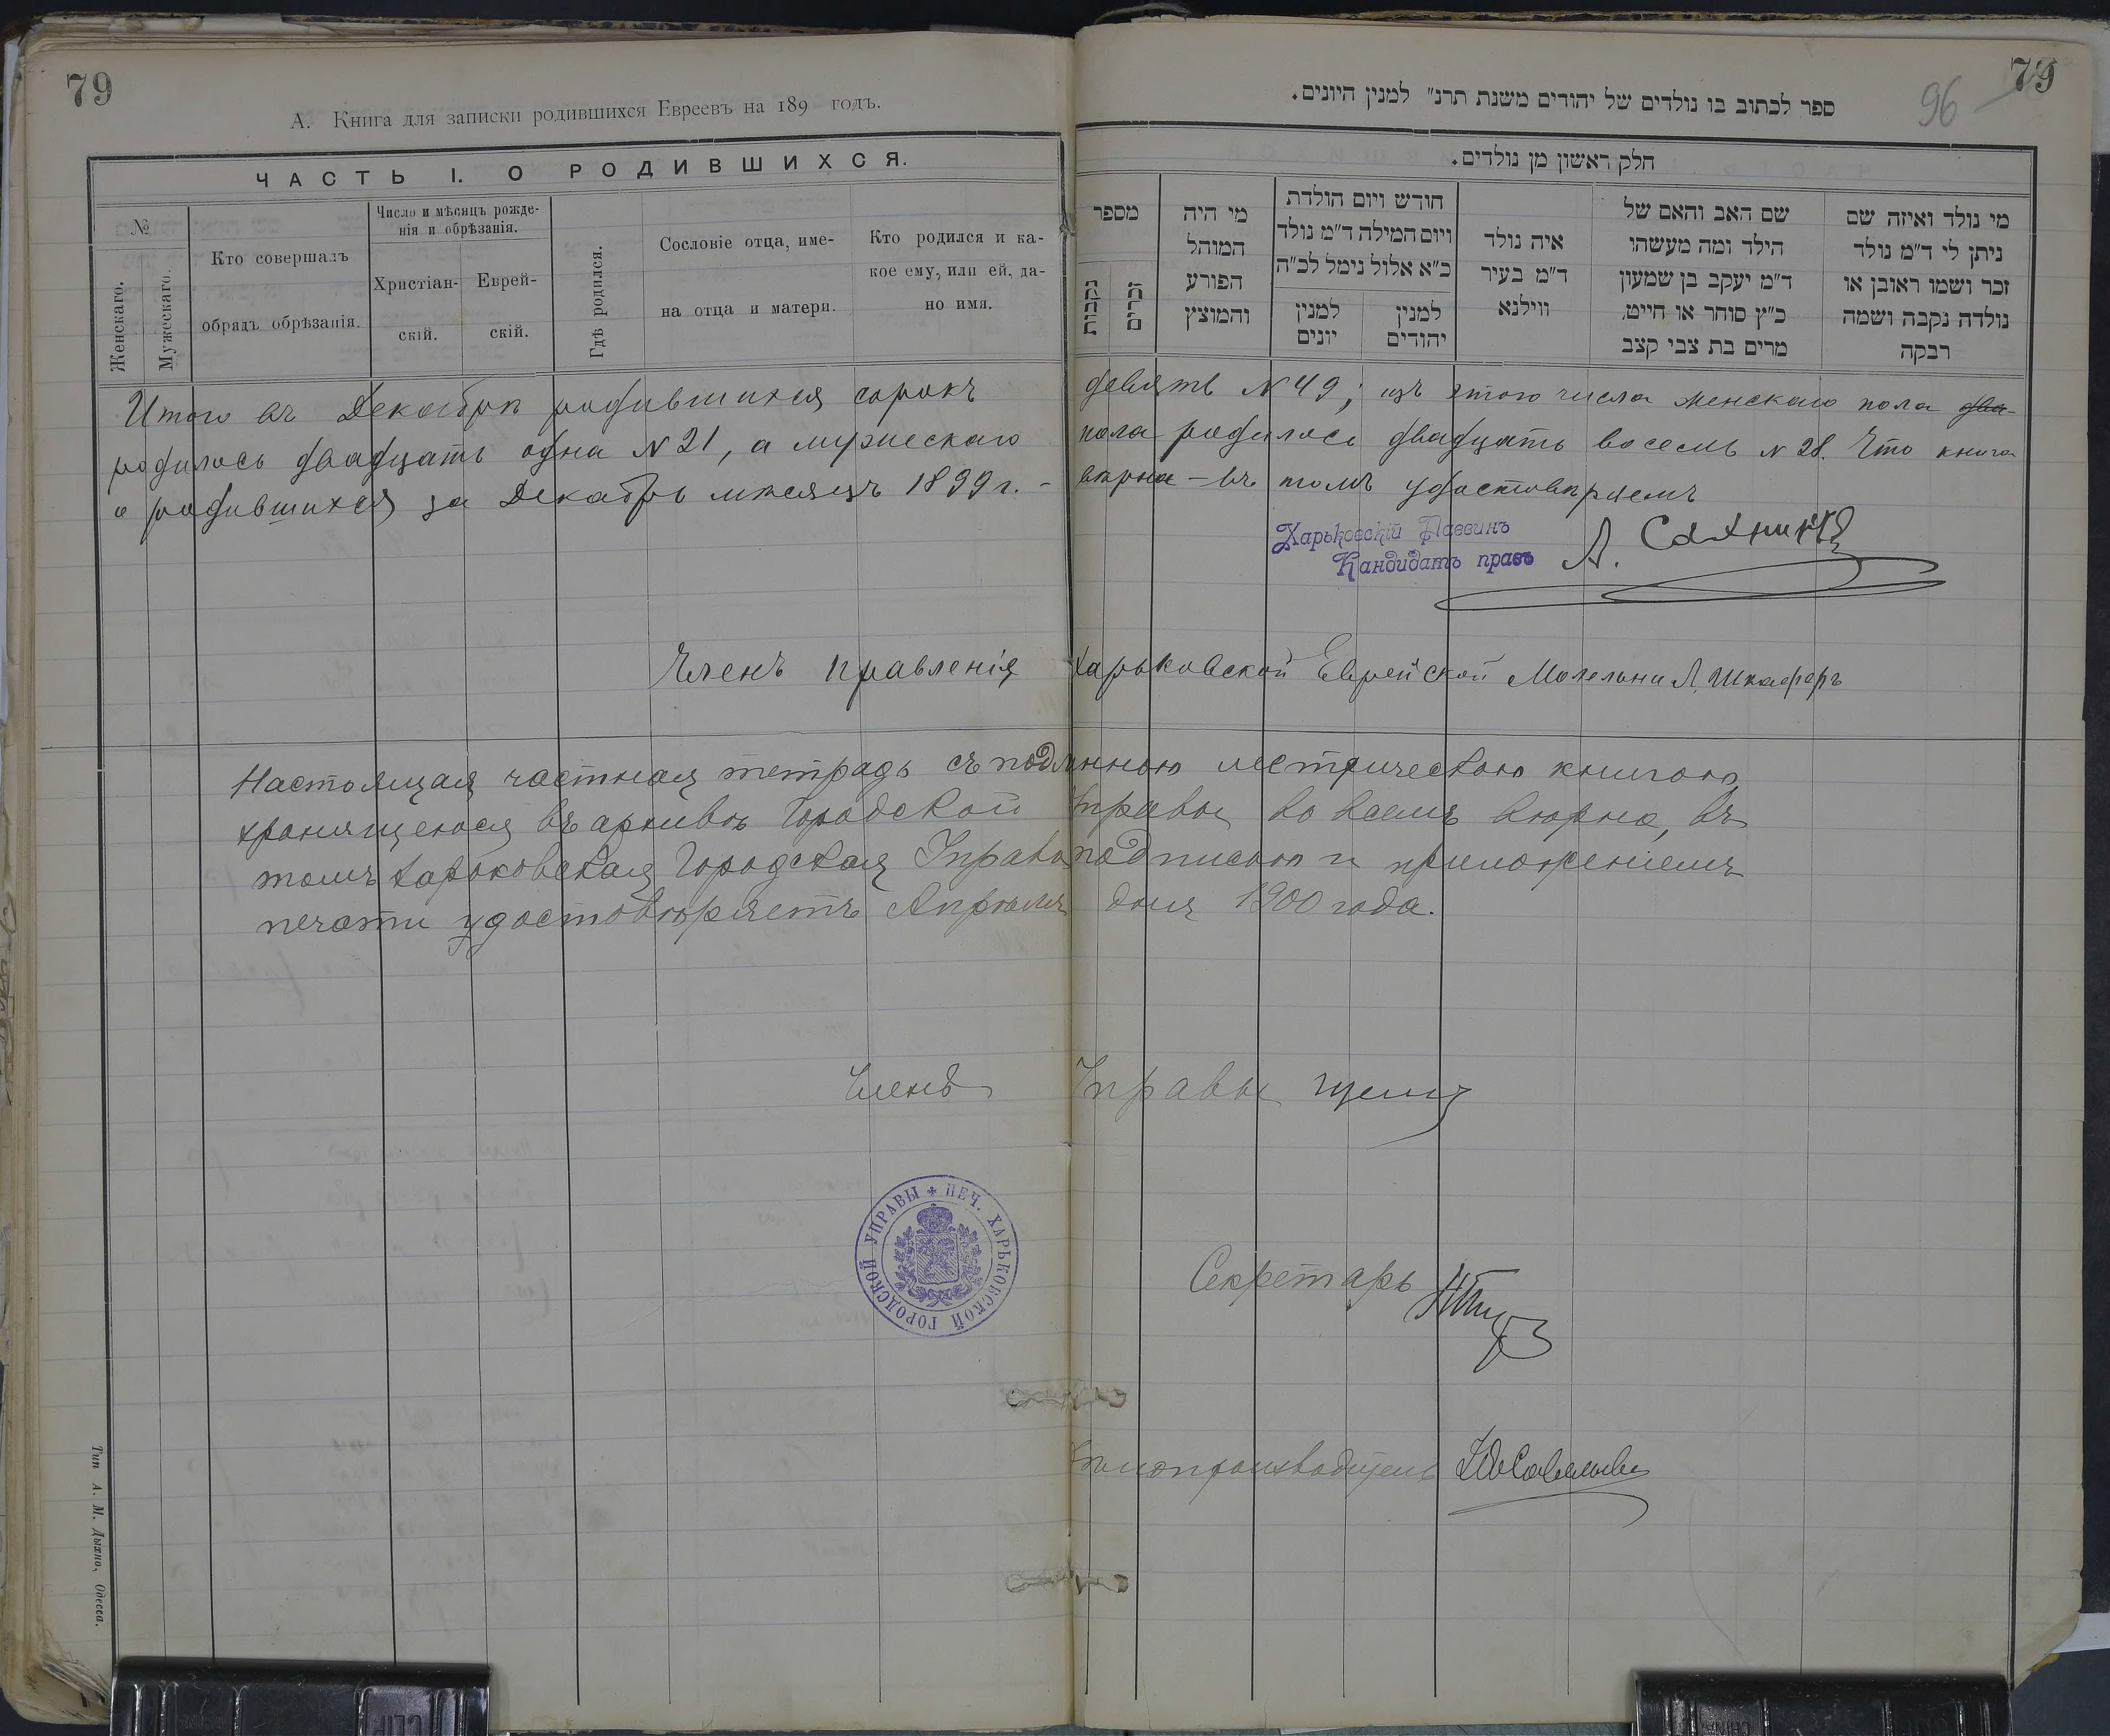 79
79
96
А. Книга для записки родившихся Евреевъ на 189 годъ.
ספר לכתוב בו נולדים של יהודים משנת תרנ״ למנין היונים.
ЧАСТЬ I. О РОДИВШИХСЯ.
חלק ראשון מן נולדים.
№
Женскаго.
Мужескаго.
Кто совершалъ
обрядъ обрѣзанія.
Число и мѣсяцъ рожде-
нія и обрѣзанія.
Христіан-
скій.
Еврей-
скій.
Гдѣ родился.
Сословіе отца, име-
на отца и матери.
Кто родился и ка-
кое ему, или ей, да-
но имя.
מספר
נקבות
זכרים
מי היה
המוהל
הפורע
והמוצץ
חודש ויום הולדת
ויום המילה ד״מ נולד
כ״א אלול נימל לכ״ה
למנין
יונים
למנין
יהודים
איה נולד
ד״מ בעיר
ווילנא
שם האב והאם של
הילד ומה מעשהו
ד״מ יעקב בן שמעון
כ״ץ סוחר או חייט,
מרים בת צבי קצב
מי נולד ואיזה שם
ניתן לי ד״מ נולד
זכר ושמו ראובן או
נולדה נקבה ושמה
רבקה
Итого въ Декабрѣ родившихся сорокъ девять N 49; изъ этого числа женскаго пола два
родилось двадцать одна N 21, а мужескаго пола родилось двадцать восемь N 28. Что книга
о родившихся за Декабрь мѣсяцъ 1899 г. - вѣрна - въ томъ удостовѣряемъ
Харьковскій Раввинъ
Кандидатъ правъ
Членъ Правленія Харьковской Еврейской Молельни Л. Шкаферъ
Настоящая частная тетрадь съ подлинною метрическою книгою,
хранящеюся въ архивѣ Городской Управы во всемъ вѣрна, въ
томъ Харьковская Городская Управа подписью и приложеніемъ
печати удостовѣряетъ Апрѣля дня 1900 года.
Членъ Управы
ПЕЧ. ХАРЬКОВСКОЙ ГОРОДСКОЙ УПРАВЫ
Секретарь
Дѣлопроизводитель
Тип А. М. Дыхно, Одесса.